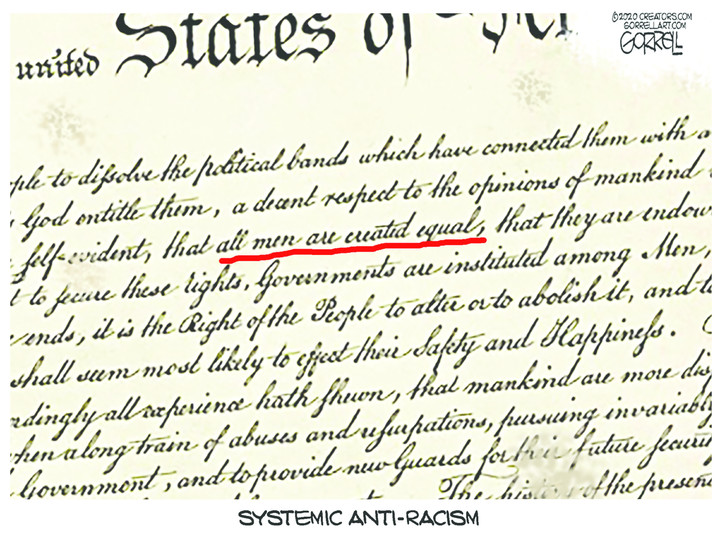 ©2020 CREATORS.COM
GORRELLART.COM
GORRELL
united States of
to dissolve the political bands which have connected them with a
God entitle them, a decent respect to the opinions of mankind
self-evident, that all men are created equal, that they are endow
to secure these rights, Governments are instituted among Men,
ends, it is the Right of the People to alter or to abolish it, and to
shall seem most likely to effect their Safety and Happiness.
rdingly all experience hath shewn, that mankind are more dis
when a long train of abuses and usurpations, pursuing invariably
Government, and to provide new Guards for their future securi
The history of the presen
SYSTEMIC ANTI-RACISM